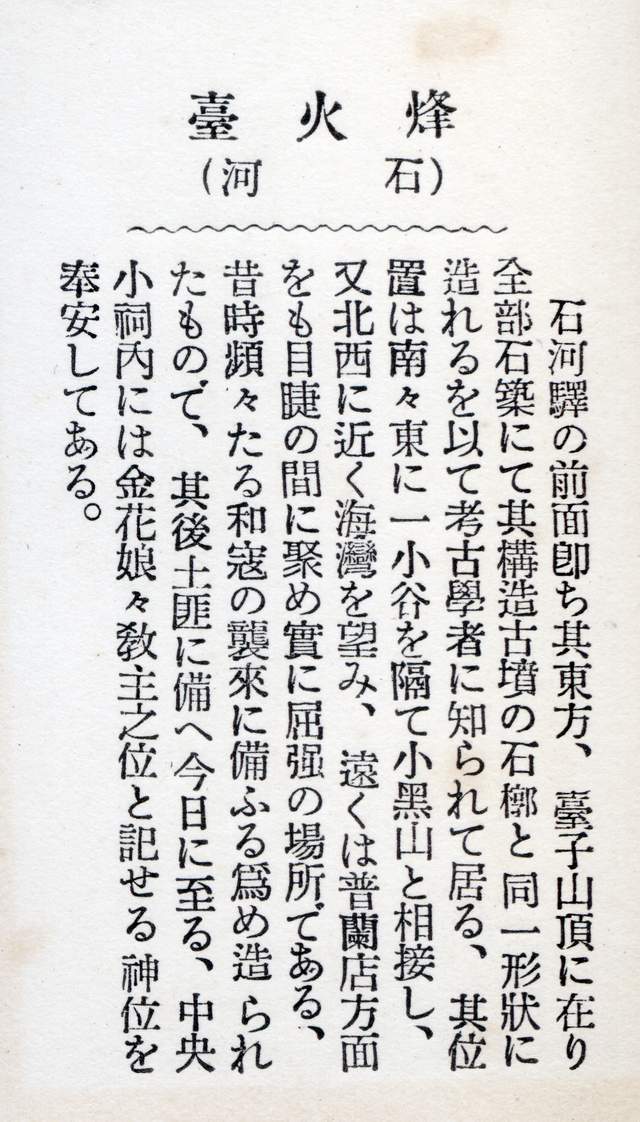 烽火臺
(石河)
石河驛の前面卽ち其東方、臺子山頂に在り
全部石築にて其構造古墳の石槨と同一形狀に
造れるを以て考古學者に知られて居る、其位
置は南々東に一小谷を隔て小黑山と相接し、
又北西に近く海灣を望み、遠くは普蘭店方面
をも目睫の間に聚め實に屈强の場所である、
昔時頻々たる和寇の襲來に備ふる爲め造られ
たもので、其後土匪に備へ今日に至る、中央
小祠內には金花娘々敎主之位と記せる神位を
奉安してある。